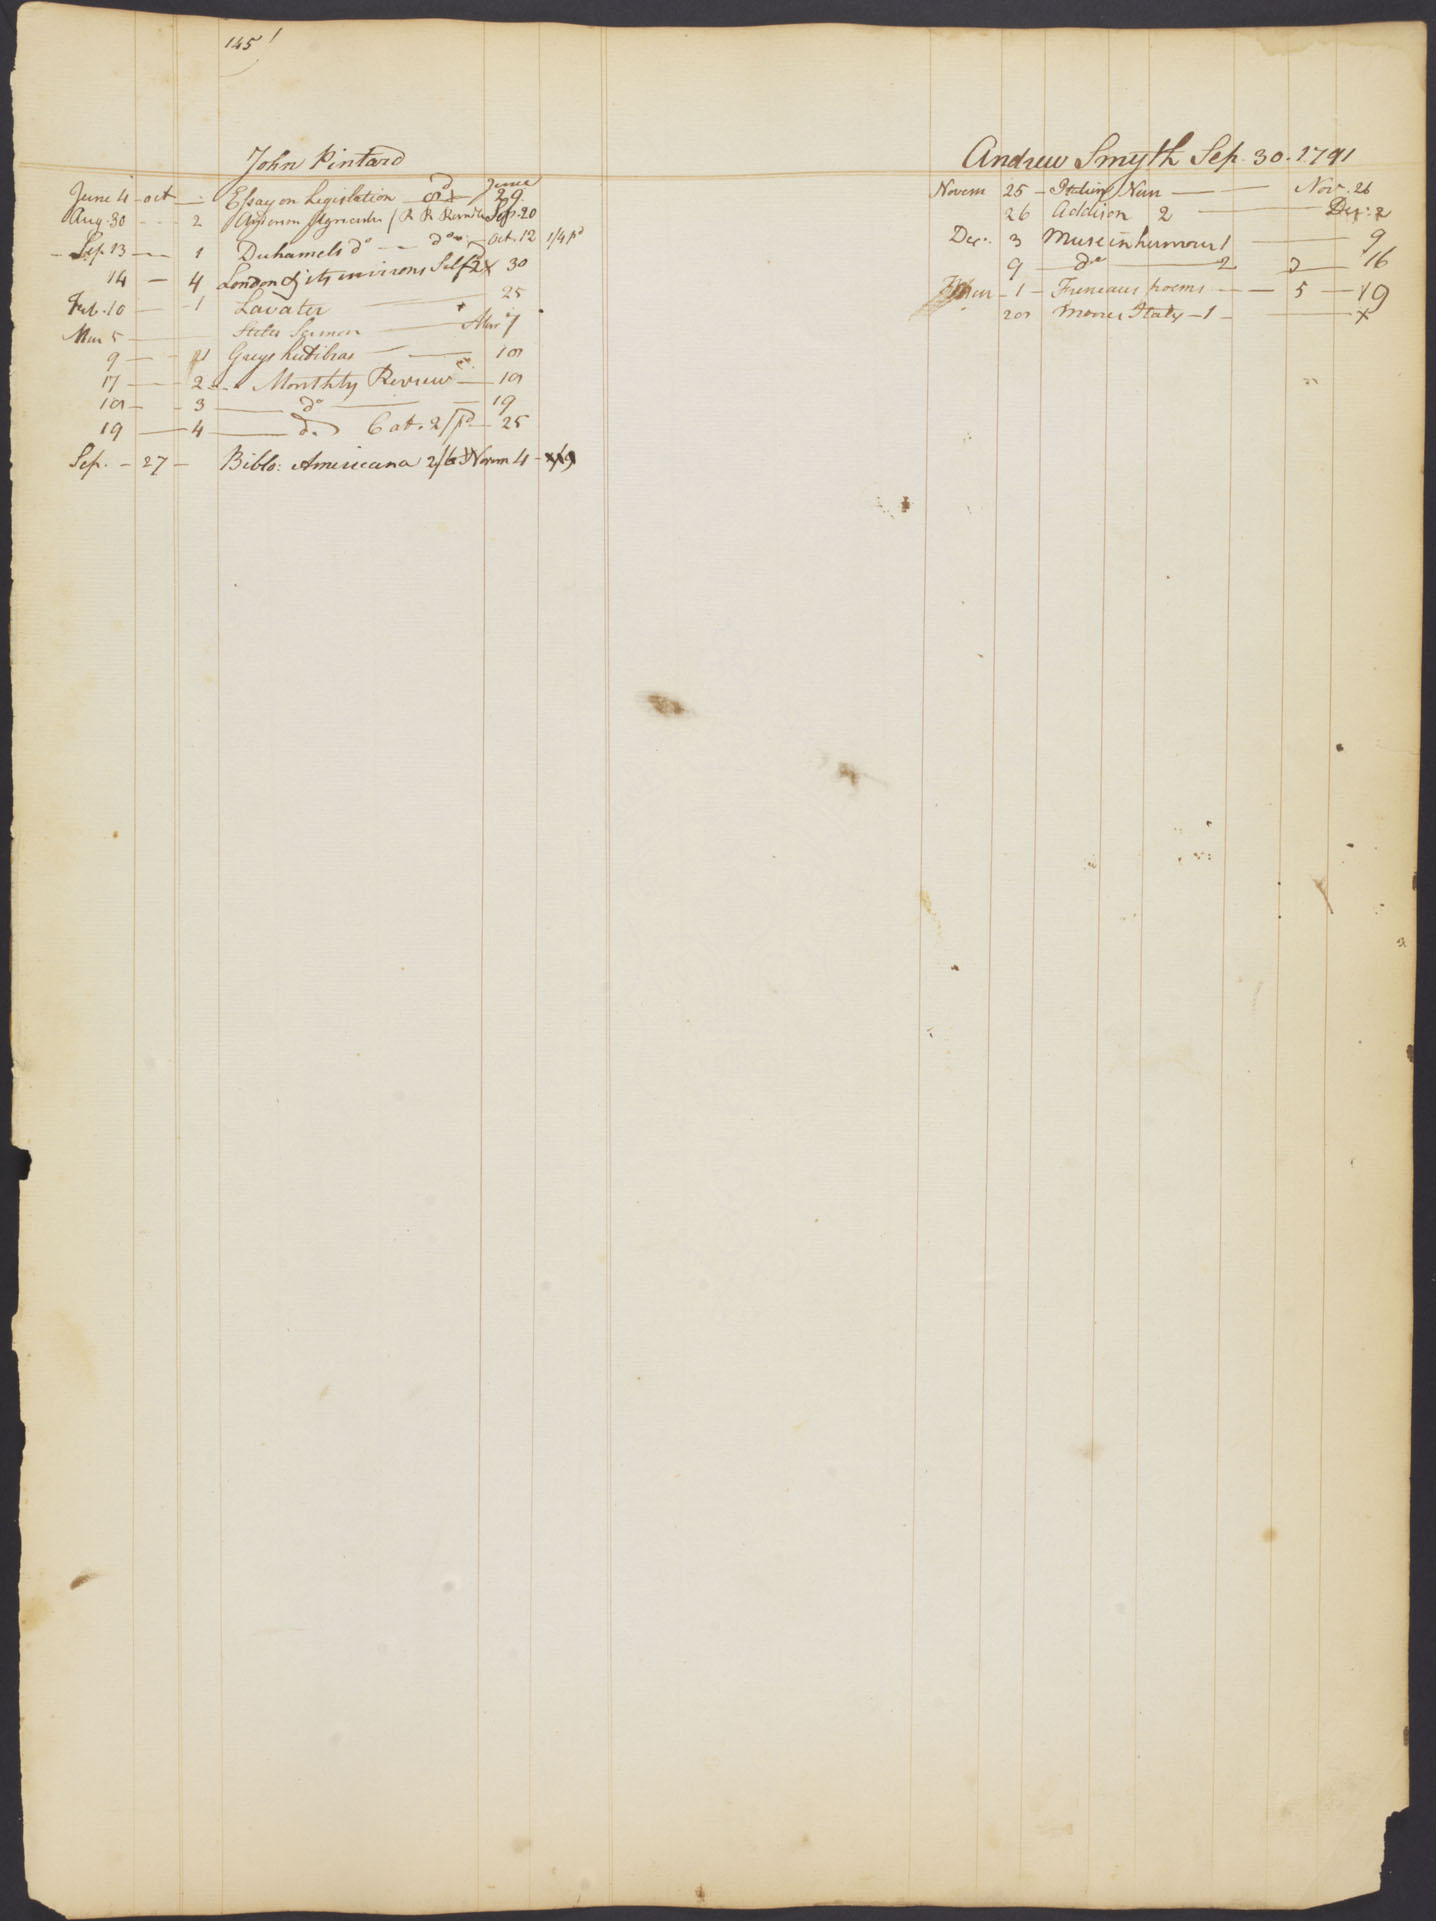 145
John Pintard
June 4 oct Essay on Legislation 8d June 29
Aug. 30 2 Agricula (R R Sep. 20
Sep. 13 1 Duhamels do do Oct. 12 1/4 pd
14 4 London & its environs Self 2 x 30
Feb. 10 1 Lavater 25
Mar 5 Stiles Sermon Mar 7
9 1 Greys hudibras 18
17 2 Monthly Review 18
18 3 do 19
19 4 do Cat. 2/ pd 25
Sep. 27 Biblo: Americana 2/6 Novem 4
Andrew Smyth Sep. 30. 1791
Novem 25 Italian Nun Nov. 26
26 Addison 2 Dec. 2
Dec. 3 Muse in humour 1 9
9 do 2 2 16
1 Freneaus poems 5 19
28 Moores Italy 1 x